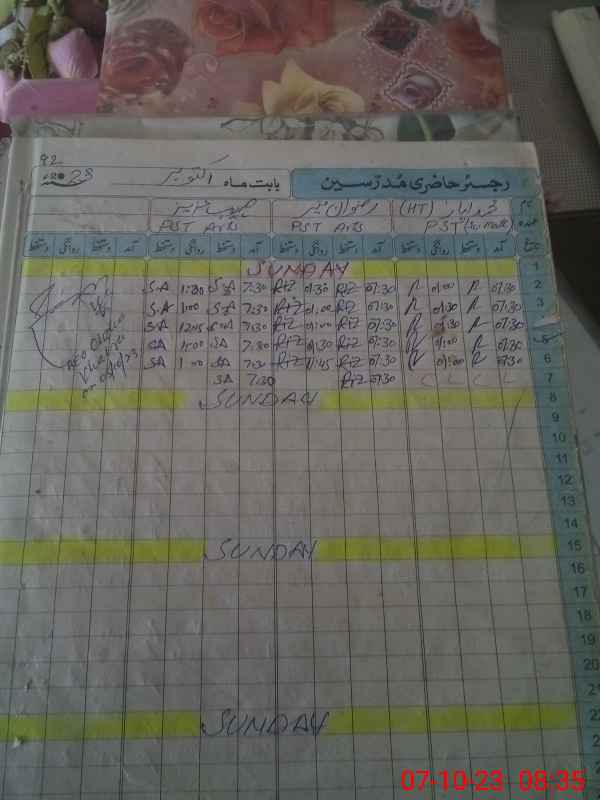 92
2023 بابت ماہ اکتوبر رجسٹر حاضری مدرسین
(HT)
PST Arts PST Arts PST
دستخط روانگی دستخط آمد دستخط روانگی دستخط آمد دستخط روانگی دستخط آمد دستخط روانگی دستخط آمد
SUNDAY 1
SA 1:30 SA 7:30 RZ 01:30 RZ 07:30 R 01:00 R 07:30 2
SA 1:00 SA 7:30 RZ 01:00 RZ 07:30 R 01:30 R 07:30 3
SA 12:45 SA 7:30 RZ 01:00 RZ 07:30 R 01:30 R 07:30
SA 1:00 SA 7:30 RZ 01:30 RZ 07:30 R 01:00 R 07:30 5
SA 1:00 SA 7:30 RZ 11:45 RZ 07:30 R 01:00 R 07:30 6
SA 7:30 RZ 07:30 C L C L 7
SUNDAY 8
9
10
11
12
13
14
SUNDAY 15
16
17
18
19
20
21
SUNDAY 22
07-10-23 08:35